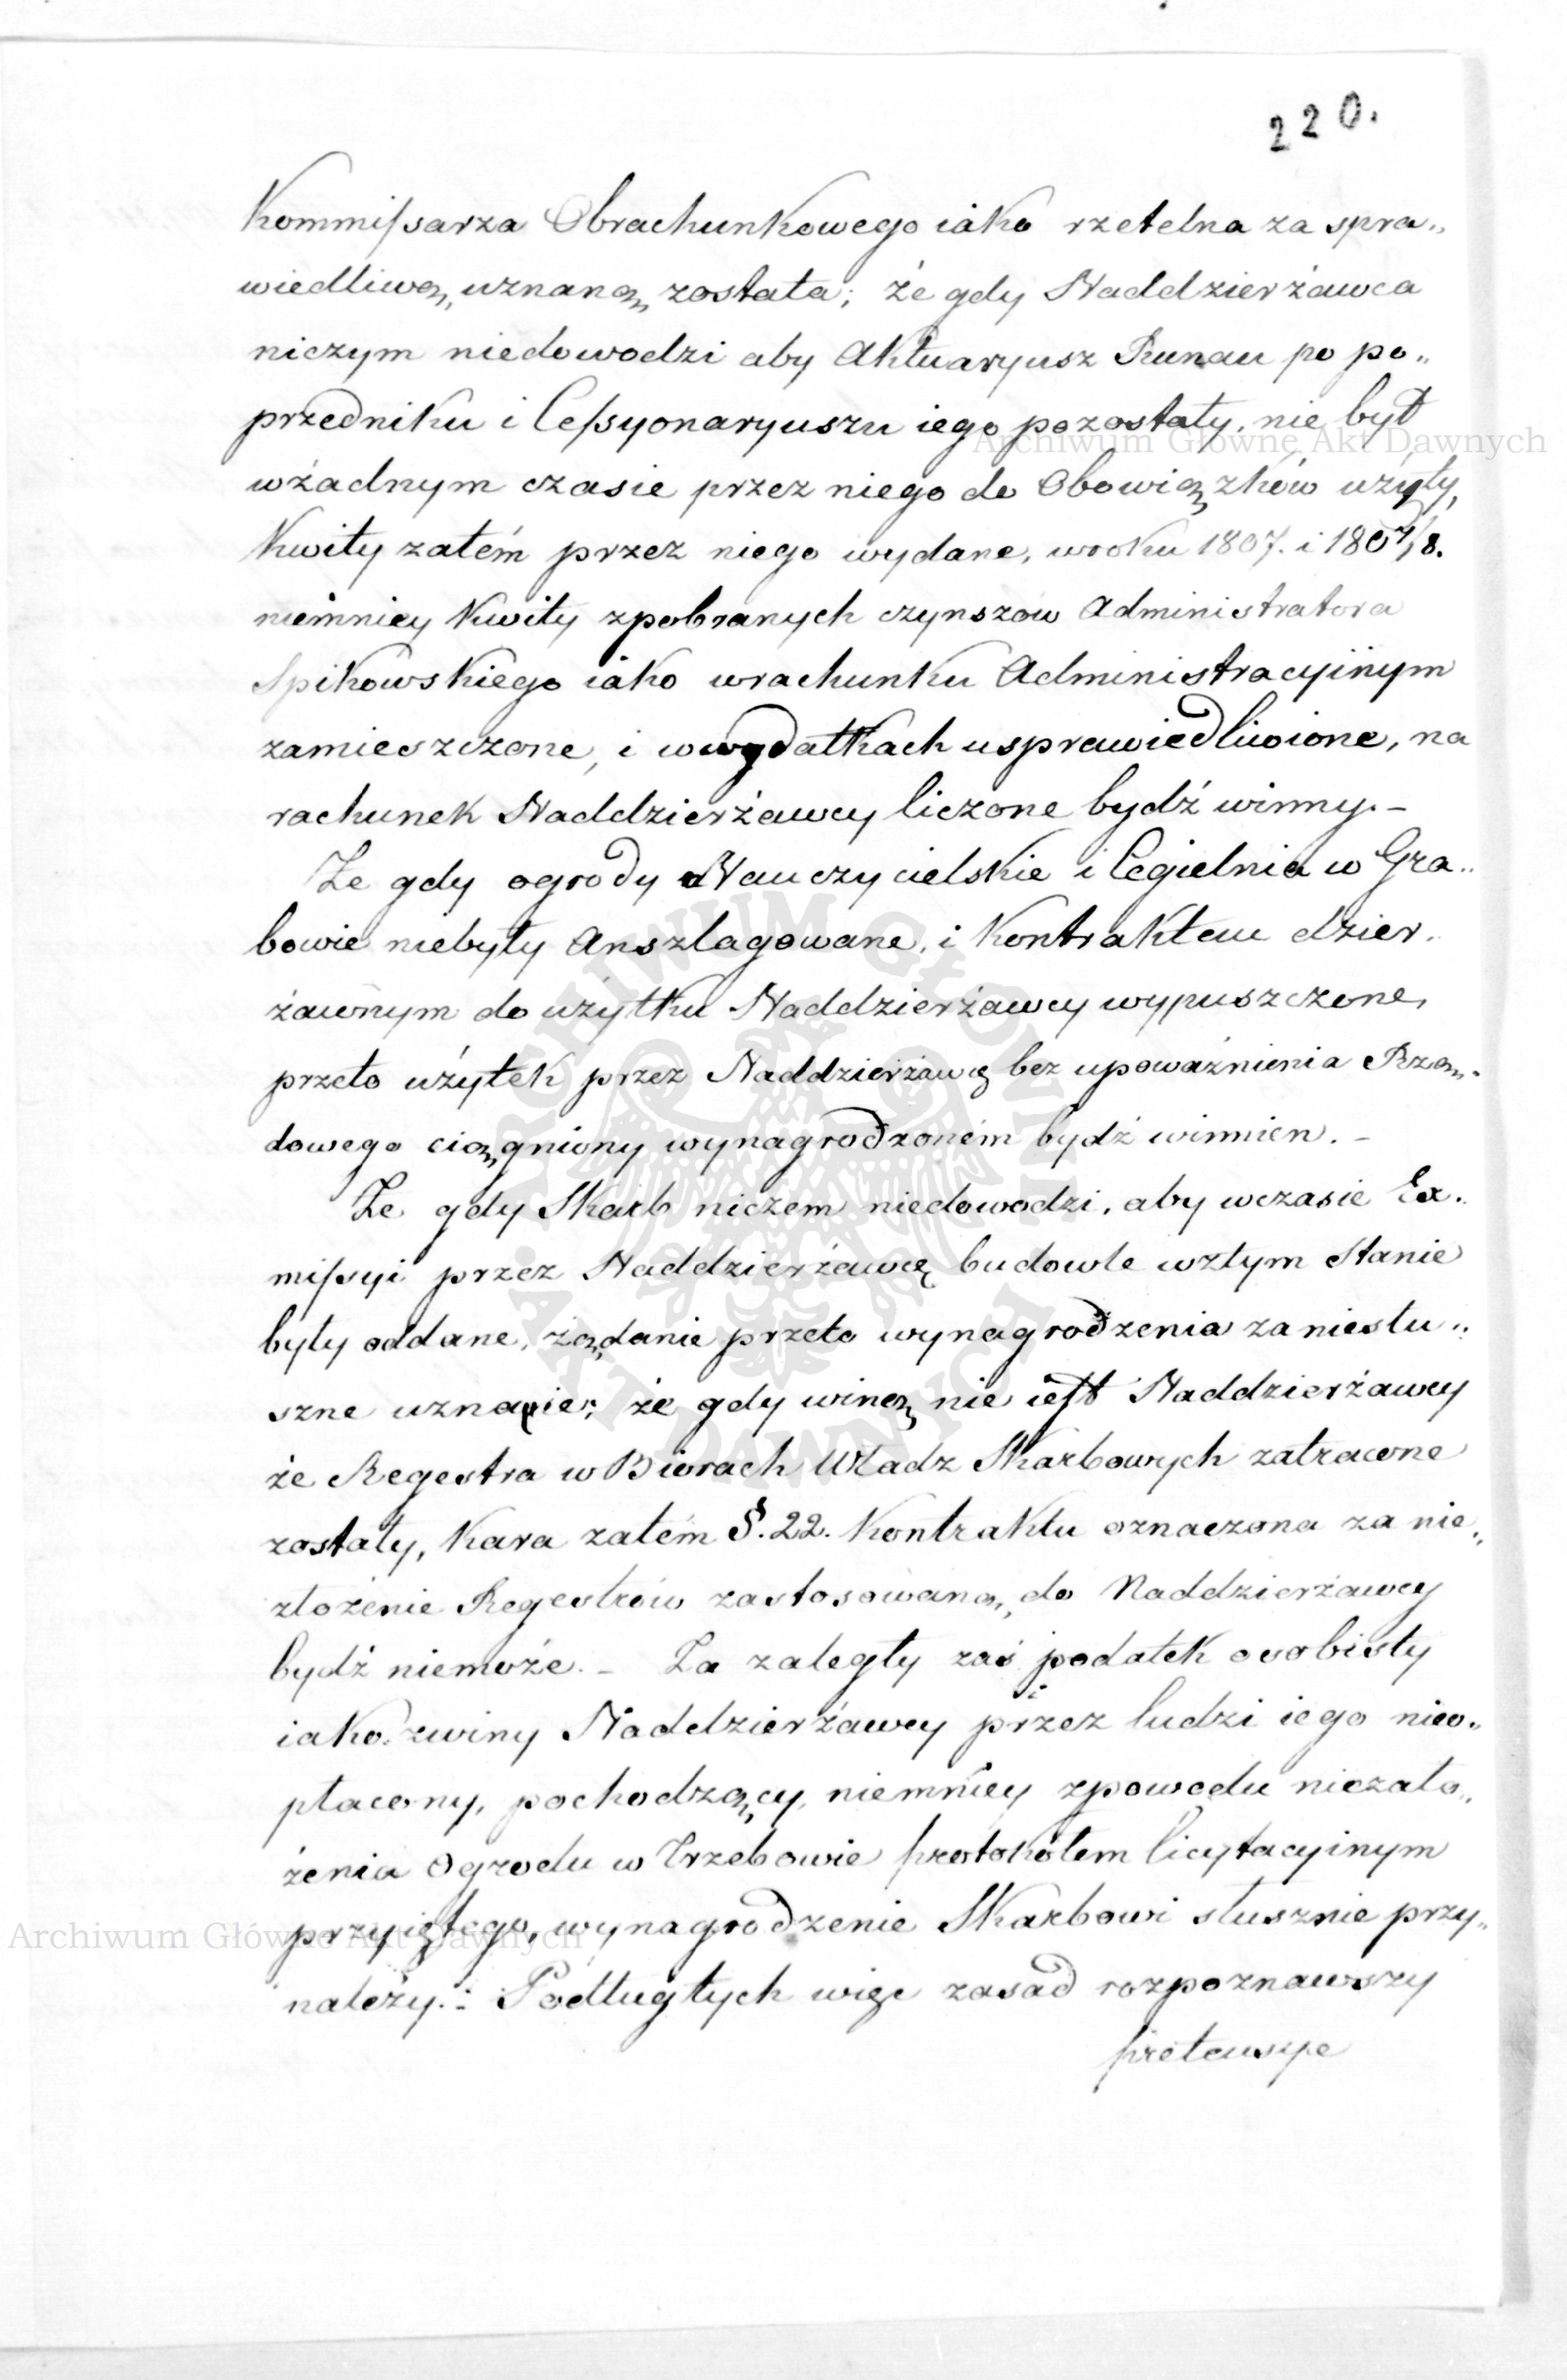 220.
Kommissarza Obrachunkowego iako rzetelna za spra„
wiedliwą uznaną została; że gdy Naddzierżawca
niczym niedowodzi aby Aktuaryusz Runau po po„
przedniku i Cessyonaryuszu iego pozostały, nie był
wżadnym czasie przez niego do Obowiązków użyty,
Kwity zatém przez niego wydane, wroku 1807. i 1807/8.
niemniey Kwity zpobranych czynszów Administratora
Spikowskiego iako wrachunku Administracyinym
zamieszczone, i wwydatkach usprawiedliwione, na
rachunek Naddzierżawcy liczone bydź winny. –
Że gdy ogrody Nauczycielskie i Cegielnia w Gra„
bowie niebyły Anszlagowane, i Kontraktem dzier„
żawnym do użytku Naddzierżawcy wypuszczone,
przeto użytek przez Naddzierżawcę bez upoważnienia Rzą„
dowego ciągniony wynagrodzoném bydź winnien. –
Że gdy Skarb niczem niedowodzi, aby wczasie Ex„
missyi przez Naddzierżawcę budowle wztym Stanie
były oddane, żądanie przeto wynagrodzenia za niesłu„
szne uznaie; że gdy winą nie iest Naddzierżawcy
że Regestra w Biórach Władz Skarbowych zatracone
zostały, Kara zatém §. 22. Kontraktu oznaczona za nie„
złożenie Regestrów zastosowaną do Naddzierżawcy
bydź niemoże. – Za zaległy zaś podatek osobisty
iako zwiny Naddzierżawcy przez ludzi iego nieo„
płacony, pochodzący, niemniey zpowodu niezało„
żenia Ogrodu w Trzebowie protokołem licytacyinym
przyiętego, wynagrodzenie Skarbowi słusznie przy„
należy. : Podług tych więc zasad rozpoznawszy
pretensye
Archiwum Główne Akt Dawnych
Archiwum Główne Akt Dawnych
ARCHIWUM GŁÓWNE AKT DAWNYCH